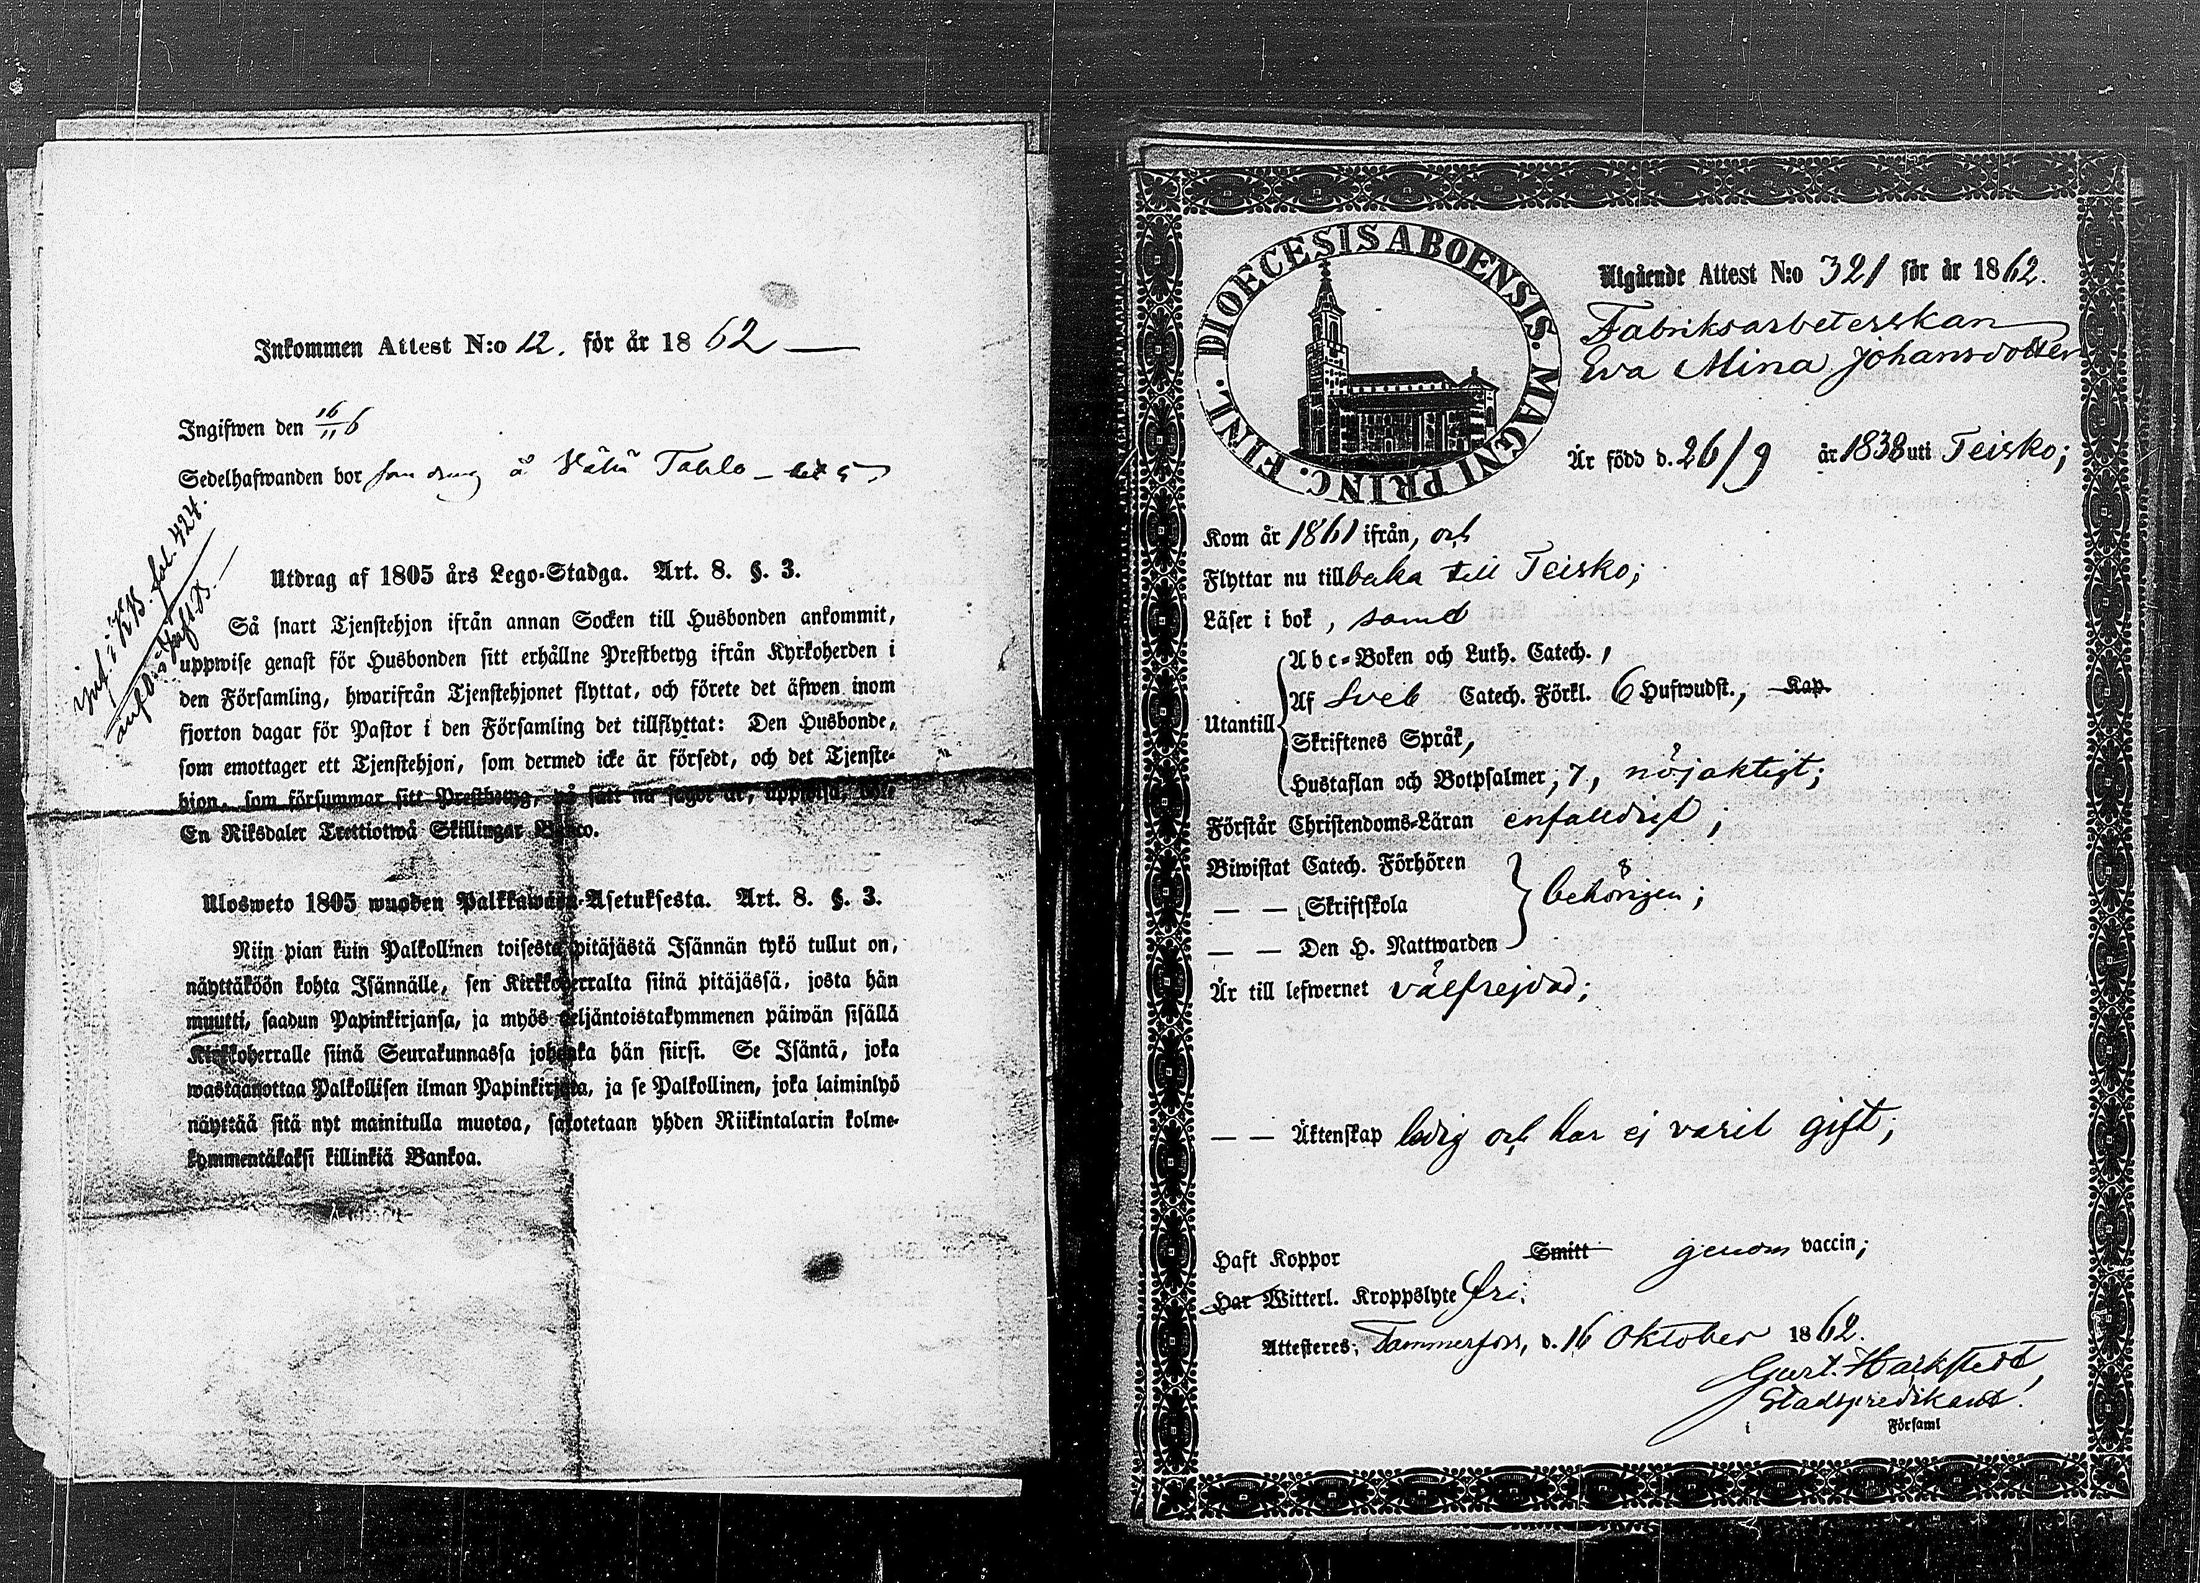 Inkommen Attest N:o 12. för år 1862
Ingifwen den 16/11 6
Sedelhafwanden bor som dräng å Wähä Tahlo
inf. i K.B. fol. 424.
Utdrag af 1805 års Lego-Stadga. Art. 8. §. 3.
Så snart Tjenstehjon ifrån annan Socken till Husbonden ankommit,
uppwise genast för Husbonden sitt erhållne Prestbetyg ifrån Kyrkoherden i
den Församling, hwarifrån Tjenstehjonet flyttat, och förete det äfwen inom
fjorton dagar för Pastor i den Församling det tillflyttat: Den Husbonde,
som emottager ett Tjenstehjon, som dermed icke är försedt, och det Tjenste-
hjon, som försummar sitt Prestbetyg, på sätt nu sagdt är, uppwisa, böte
En Riksdaler Trettiotwå Skillingar Banco.
Ulosweto 1805 wuoden Palkkawäen-Asetuksesta. Art. 8. §. 3.
Niin pian kuin Palkollinen toisesta pitäjästä Isännän tykö tullut on,
näyttäköön kohta Isännälle, sen Kirkkoherralta siinä pitäjässä, josta hän
muutti, saadun Papinkirjansa, ja myös neljäntoistakymmenen päiwän sisällä
Kirkkoherralle siinä Seurakunnassa johonka hän siirsi. Se Isäntä, joka
wastaanottaa Palkollisen ilman Papinkirjata, ja se Palkollinen, joka laiminlyö
näyttää sitä nyt mainitulla muotoa, sakotetaan yhden Riikintalarin kolme-
kymmentäkaksi killinkiä Bankoa.
DIOECESIS ABOENSIS. MAGNI PRINC. FINL.
Utgående Attest N:o 321 för år 1862.
Fabriksarbeterskan
Eva Mina Johansdotter
Är född d. 26/9 år 1838 uti Teisko;
Kom år 1861 ifrån, och
Flyttar nu tillbaka till Teisko;
Läser i bok, samt
Utantill
Abc-Boken och Luth. Catech.,
Af Sveb Catech. Förkl. 6 Hufwudst., Kap.
Skriftenes Språk,
Hustaflan och Botpsalmer, 7, nöjaktigt;
Förstår Christendoms-Läran enfalldigt;
Biwistat Catech. Förhören
— — Skriftskola behörigen;
— — Den H. Nattwarden
Är till lefwernet välfrejdad;
— — Äktenskap ledig och har ej varit gift;
Haft Koppor Smitt genom vaccin;
Har Witterl. Kroppslyte fri.
Attesteres; Tammerfors, d. 16 Oktober 1862.
Gust. Harkstedt,
Stadspredikant.
i Församl